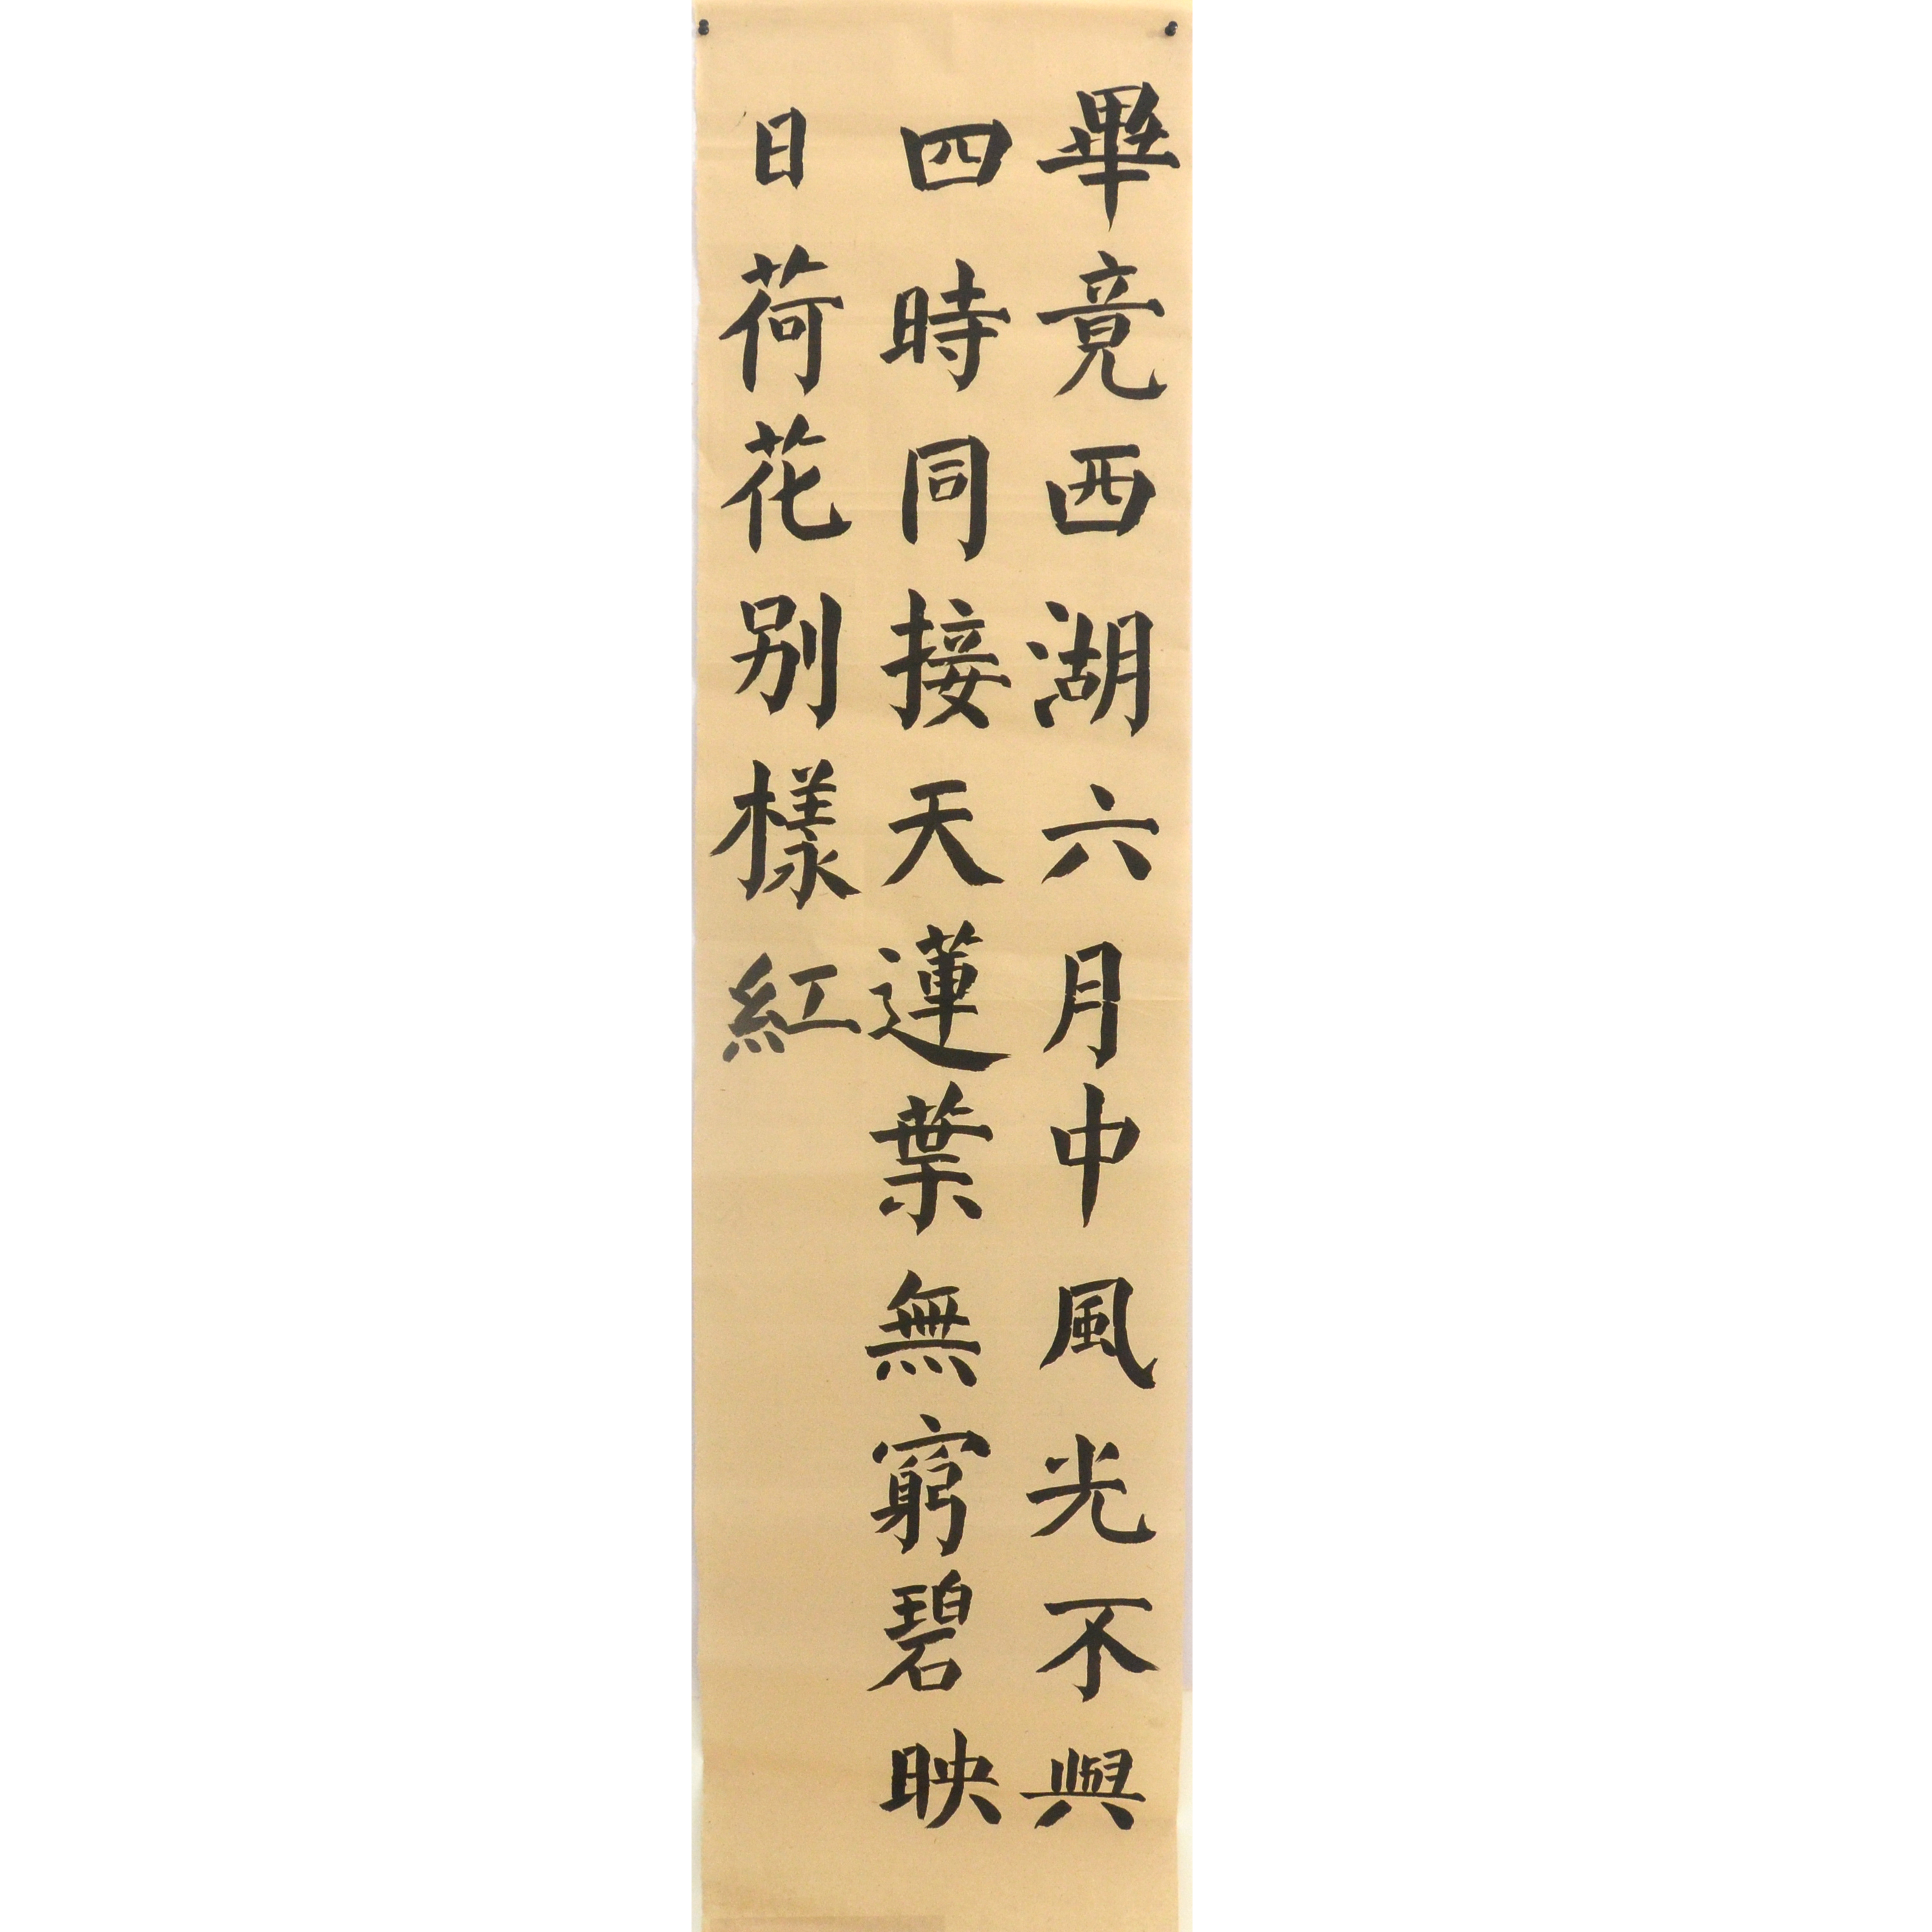 畢竟西湖六月中風光不與
四時同接天蓮葉無窮碧映
日荷花别樣紅